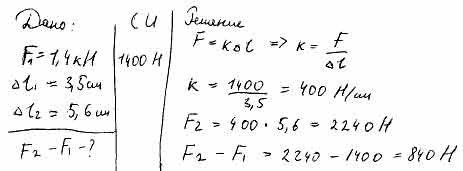 Дано:
F₁ = 1,4 кН
Δl₁ = 3,5 см
Δl₂ = 5,6 см
F₂ - F₁ - ?
СИ
1400 Н
Решение
F = кΔl => к = F/Δl
к = 1400/3,5 = 400 Н/см
F₂ = 400 · 5,6 = 2240 Н
F₂ - F₁ = 2240 - 1400 = 840 Н